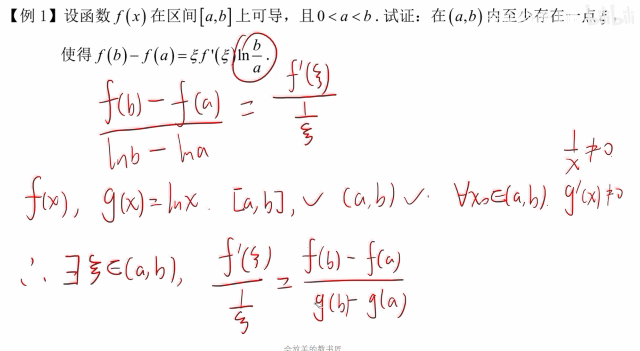 【例1】设函数 f(x) 在区间[a,b]上可导，且0<a<b．试证：在(a,b)内至少存在一点ξ，
使得 f(b)−f(a)=ξf'(ξ)ln b/a．
(f(b)−f(a))/(lnb−lna) = f'(ξ)/(1/ξ)
1/x≠0
f(x)，g(x)=lnx．[a,b]，✓ (a,b) ✓． ∀x₀∈(a,b)．g'(x)≠0
∴ ∃ξ∈(a,b)，f'(ξ)/(1/ξ) = (f(b)−f(a))/(g(b)−g(a))